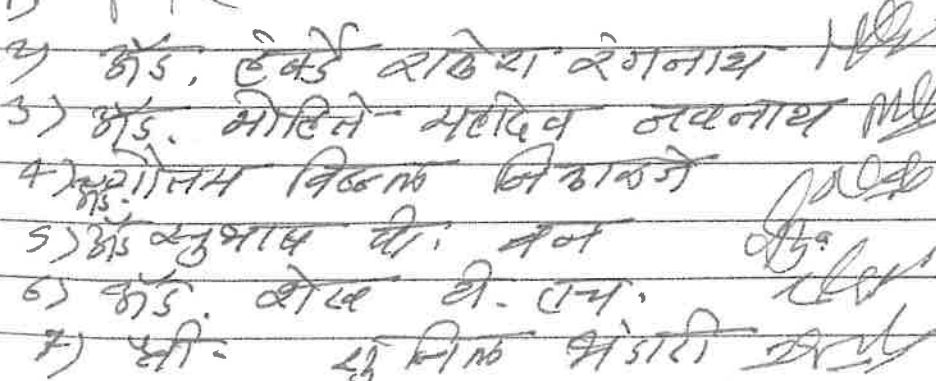 २) ॲड. हेबर्डे राकेश रंगनाथ
३) ॲड. मोहिते महादेव नवनाथ
४) ॲड. गौतम विठ्ठल
५) ॲड सुभाष पी. बन
६) ॲड. शेख पी. एच.
७) श्री. सुनिल भंडारी